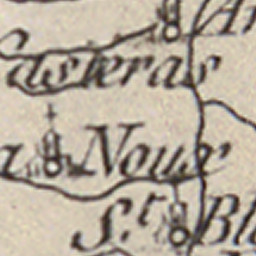 Casteras
a Noux
S.t Bl